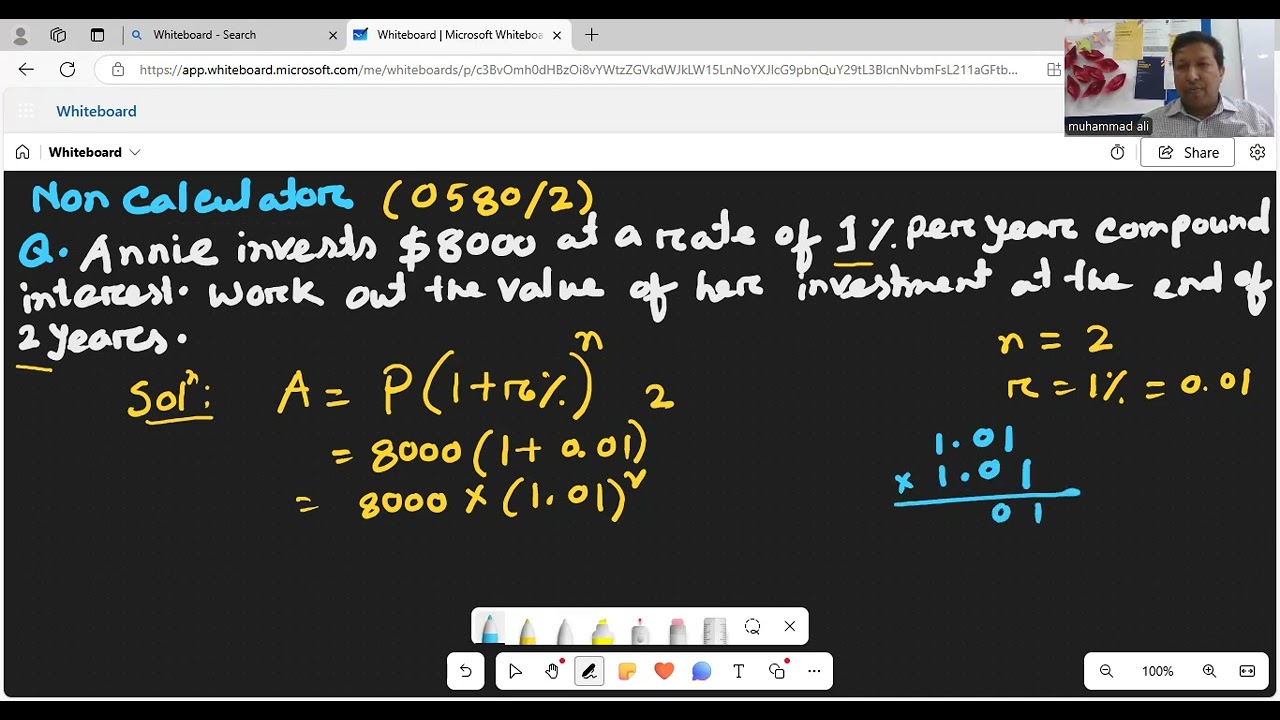 Whiteboard - Search
Whiteboard | Microsoft Whiteboa
https://app.whiteboard.microsoft.com/me/whiteboards/p/
Whiteboard
muhammad ali
Whiteboard
Share
Non Calculator (0580/2)
Q. Annie invests $8000 at a rate of 1% per year compound
interest. Work out the value of her investment at the end of
2 years.
Solⁿ: A = P(1+r%)ⁿ
= 8000 (1+ 0.01)²
= 8000 × (1.01)²
n = 2
r = 1% = 0.01
1.01
× 1.01
0 1
100%